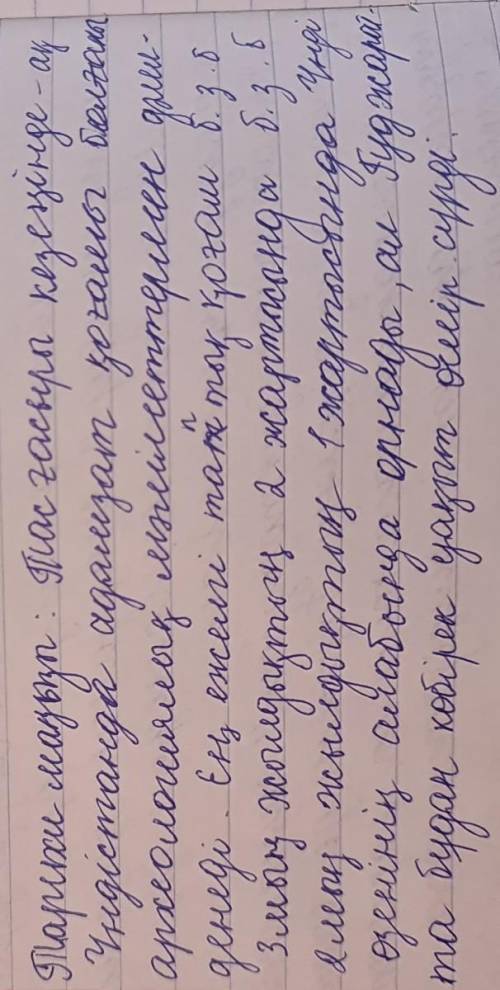 Тарихи маңызы: Тас ғасыры кезеңінде-ақ
Үндістанда адамзат қоғамы болғаны
археологиялық мәліметтермен дәлел-
денеді. Ең ежелгі таптық қоғам б.з.б
3 мың жылдықтың 2 жартысында б.з.б
2 мың жылдықтың 1 жартысында Үнді
өзенінің алабында орнады, ал Гуджарат-
та бұдан көбірек уақыт өмір сүрді.